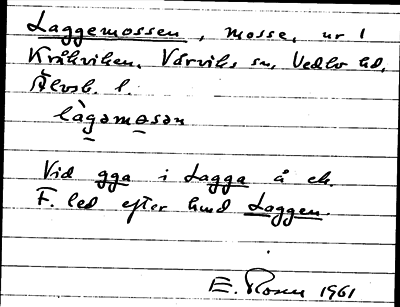 Laggemossen, mosse, nr 1
Kråkviken, Värviks sn, Vedbo hd,
Älvsb. l.
làgəmɷsən
Vid gga i Lagga å ek.
F. led efter hmd Laggen.
E. Rosen 1961